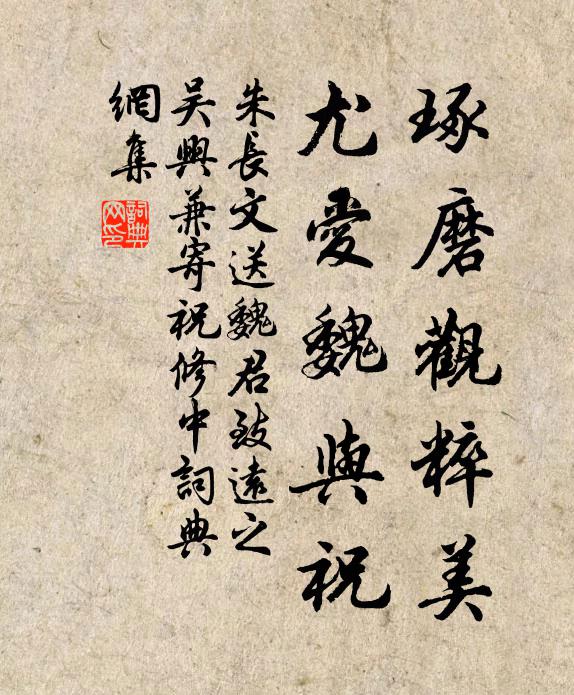 琢磨觀粹美
尤愛魏與祝
朱長文送魏君致遠之
吳興兼寄祝修中詞典
網集
詞典
网印